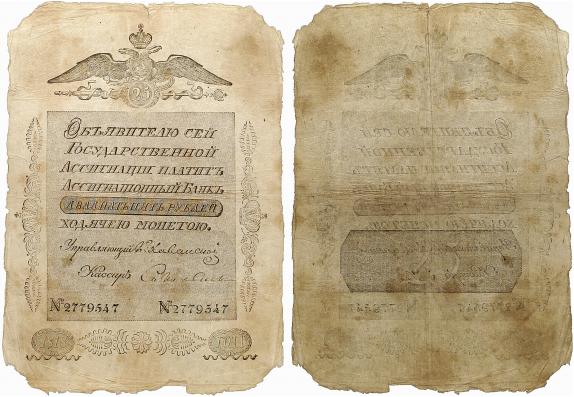 25
Объявителю сей
Государственной
Ассигнации платитъ
Ассигнационный Банкъ
двадцать пять рублей
ходячею монетою.
Управляющий
Кассиръ
№2779547 №2779547